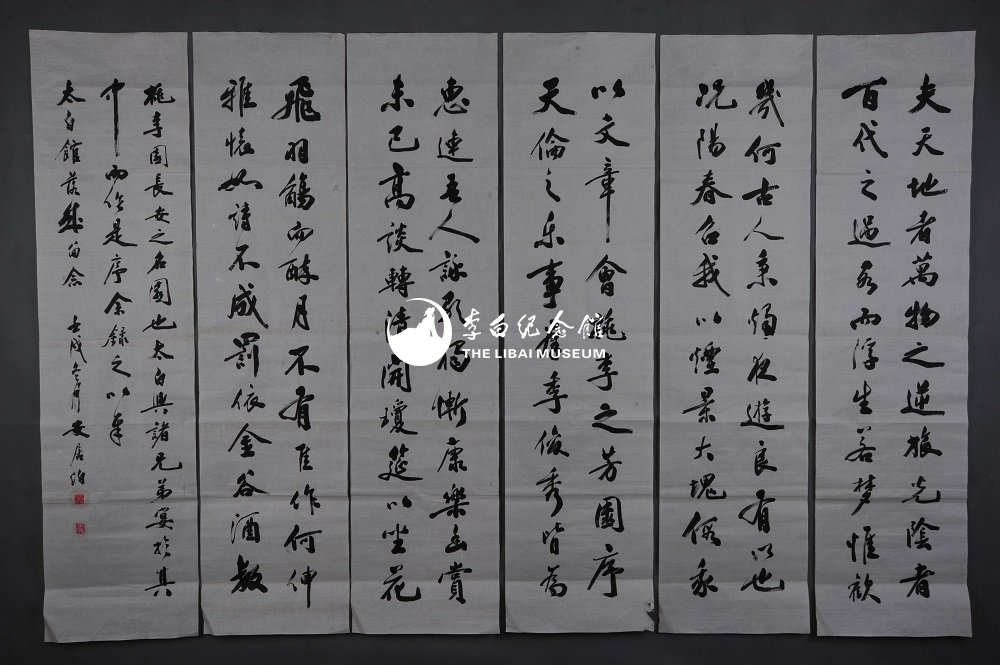 夫天地者萬物之逆旅光陰者
百代之過客而浮生若梦惟歡
幾何古人秉燭夜遊良有以也
况陽春召我以煙景大塊假我
以文章會桃李之芳園序
天倫之乐事羣季俊秀皆為
惠連吾人詠歌獨慚康樂幽賞
未已高談轉清開瓊筵以坐花
飛羽觴而醉月不有佳作何伸
雅懷如詩不成罰依金谷酒數
桃李園長安之名園也太白與諸兄弟宴於其
中而作是序余錄之以奉
太白館落成留念 壬戌冬月
李白纪念館
THE LIBAI MUSEUM